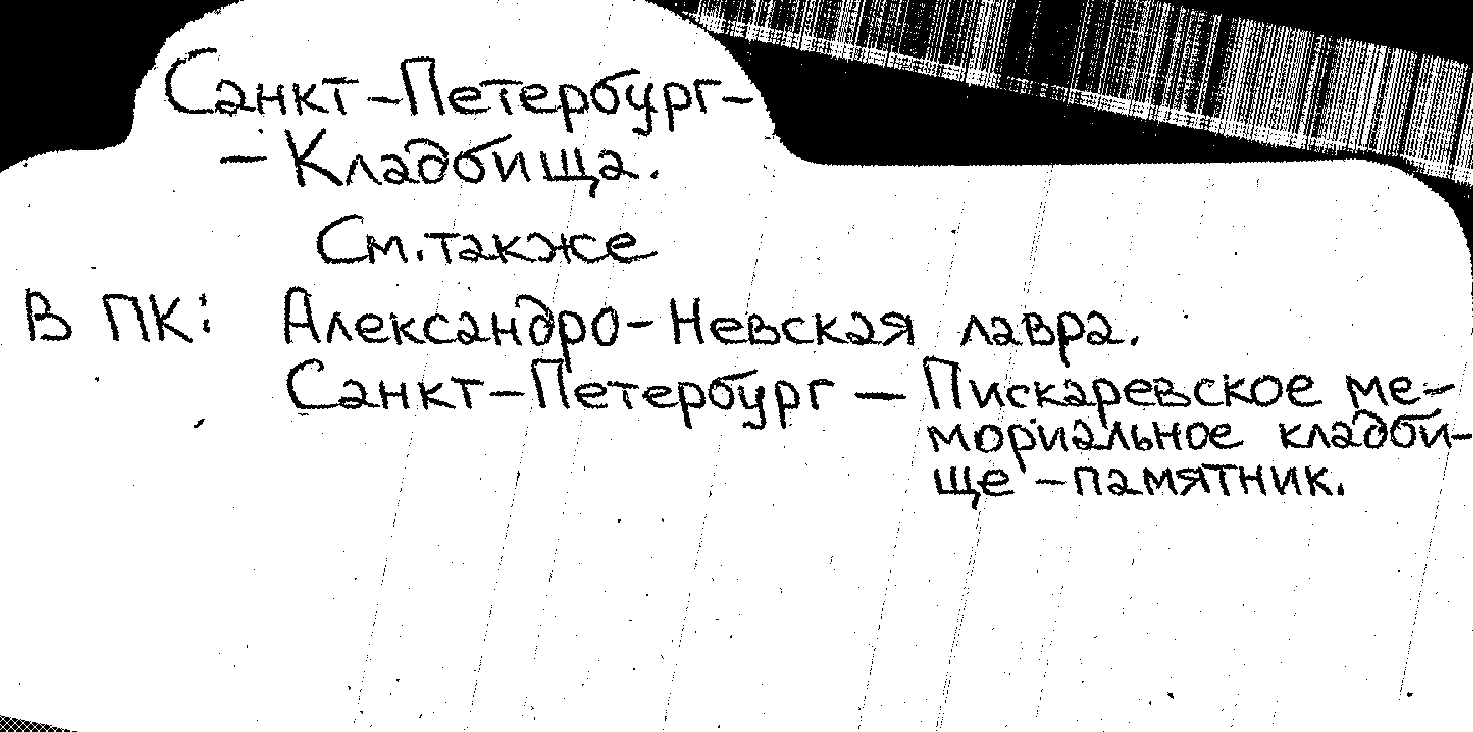 Санкт-Петербург-
- Кладбища.
См. также
В ПК: Александро-Невская лавра.
Санкт-Петербург - Пискаревское ме-
мориальное кладби-
ще - памятник.